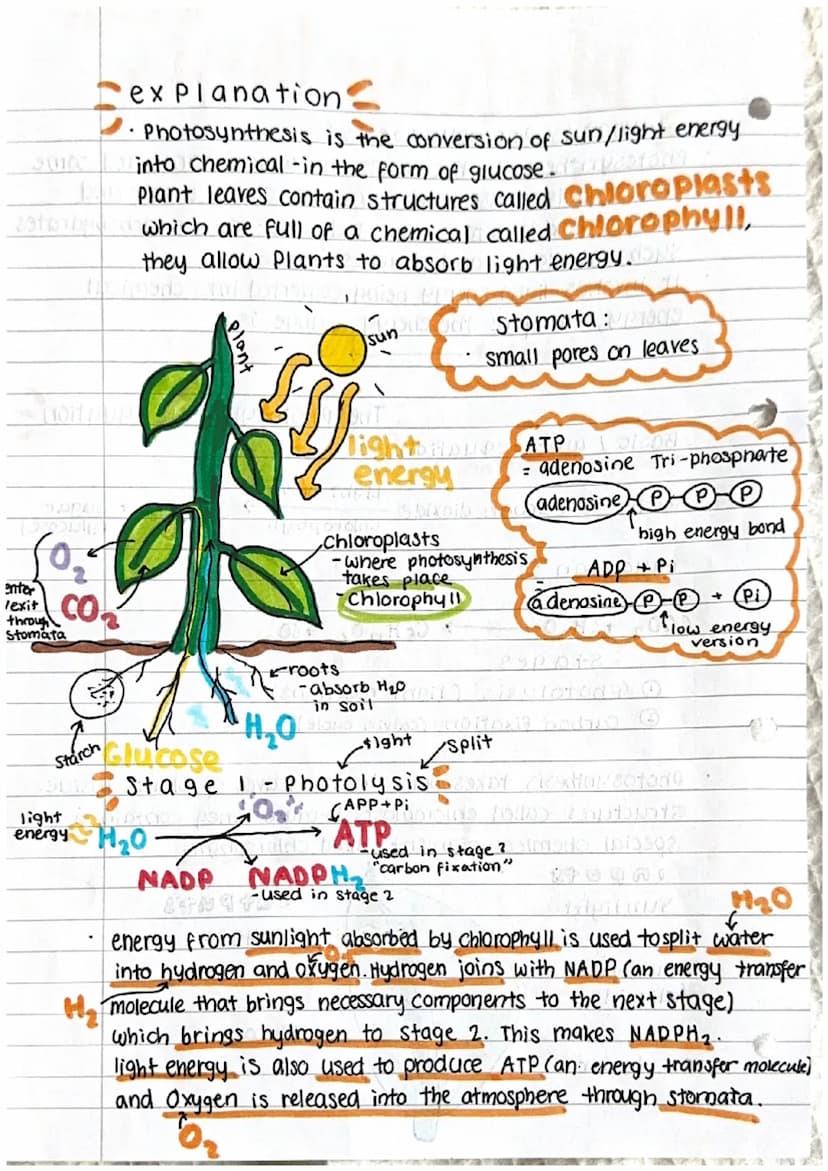 explanation
· Photosynthesis is the conversion of sun/light energy
into chemical - in the form of glucose.
Plant leaves contain structures called chloroplasts
which are full of a chemical called chlorophyll,
they allow Plants to absorb light energy.
Plant
sun
stomata:
· small pores on leaves
light
energy
ATP
= adenosine Tri-phosphate
adenosine P P P
high energy bond
ADP + Pi
adenosine P P + Pi
low energy
version
chloroplasts
- where photosynthesis
takes place
- Chlorophyll
O₂
CO₂
enter
/exit
through
stomata
roots
- absorb H₂O
in soil
H₂O
starch
Glucose
light
split
Stage 1 - Photolysis
light
energy
H₂O
O₂
APP + Pi
ATP
- used in stage 2
"carbon fixation"
NADP
NADPH₂
- used in stage 2
H₂O
· energy from sunlight absorbed by chlorophyll is used to split water
O₂
into hydrogen and oxygen. Hydrogen joins with NADP (an energy transfer
H₂
molecule that brings necessary components to the next stage)
which brings hydrogen to stage 2. This makes NADPH₂.
light energy is also used to produce ATP (an energy transfer molecule)
and Oxygen is released into the atmosphere through stomata.
O₂